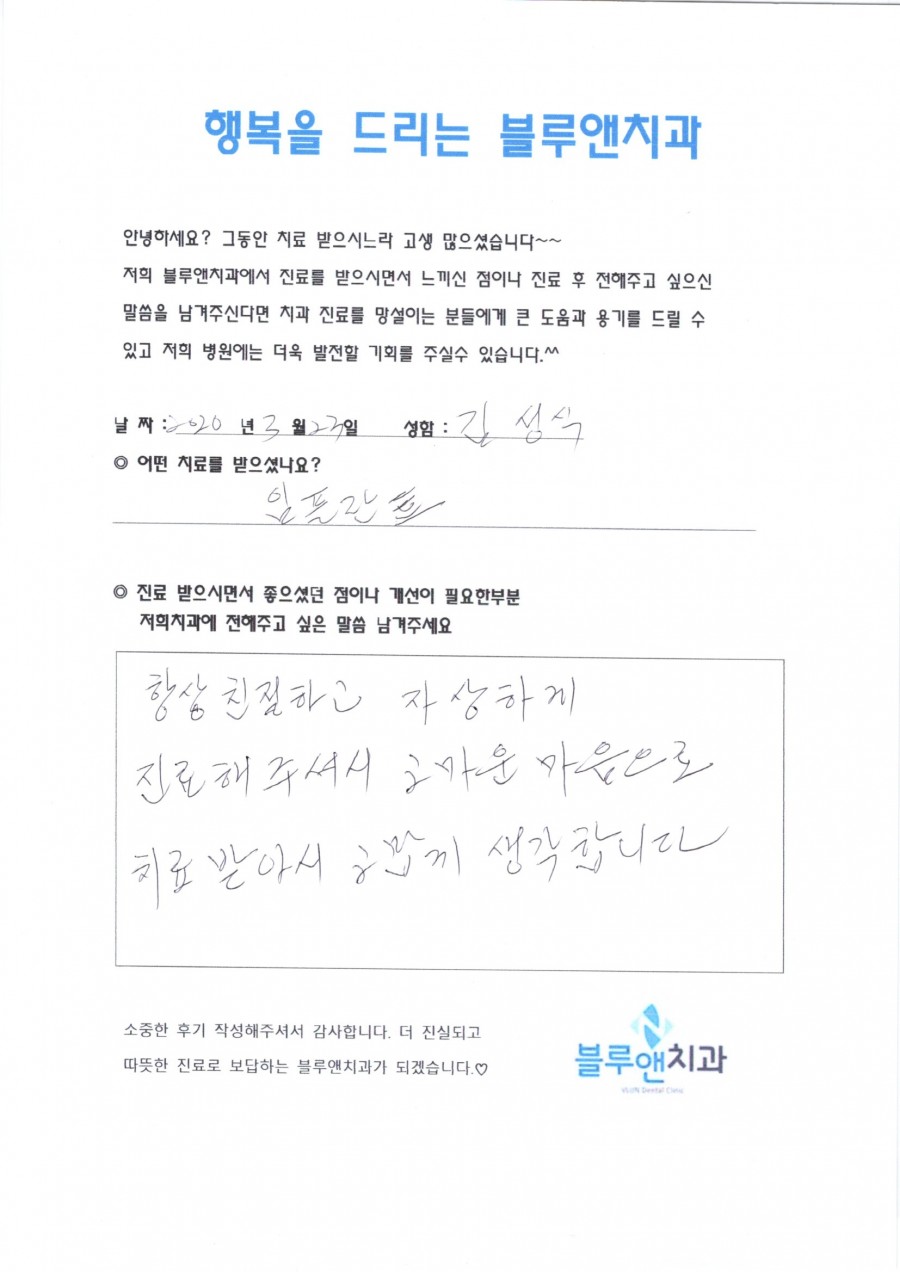 행복을 드리는 블루앤치과
안녕하세요? 그동안 치료 받으시느라 고생 많으셨습니다~~
저희 블루앤치과에서 진료를 받으시면서 느끼신 점이나 진료 후 전해주고 싶으신
말씀을 남겨주신다면 치과 진료를 망설이는 분들에게 큰 도움과 용기를 드릴 수
있고 저희 병원에는 더욱 발전할 기회를 주실수 있습니다.^^
날 짜 : 2020 년 3 월 23일 성함 : 김성식
◎ 어떤 치료를 받으셨나요?
임플란트
◎ 진료 받으시면서 좋으셨던 점이나 개선이 필요한부분
저희치과에 전해주고 싶은 말씀 남겨주세요
항상 친절하고 자상하게
진료해 주셔서 고마운 마음으로
치료 받아서 고맙게 생각합니다
소중한 후기 작성해주셔서 감사합니다. 더 진실되고
따뜻한 진료로 보답하는 블루앤치과가 되겠습니다.♡
블루앤치과
VLUN Dental Clinic